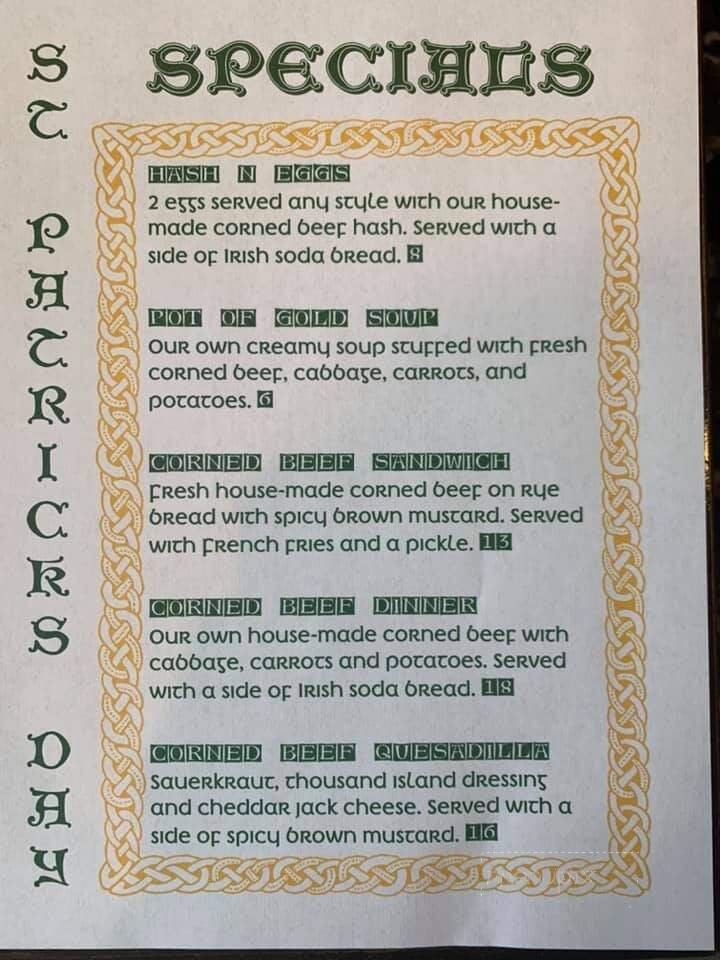 SPECIALS
ST PATRICKS DAY
HASH N EGGS
2 eggs served any style with our house-
made corned beef hash. Served with a
side of Irish soda bread. 8
POT OF GOLD SOUP
Our own creamy soup stuffed with fresh
corned beef, cabbage, carrots, and
potatoes. 6
CORNED BEEF SANDWICH
Fresh house-made corned beef on rye
bread with spicy brown mustard. Served
with French fries and a pickle. 13
CORNED BEEF DINNER
Our own house-made corned beef with
cabbage, carrots and potatoes. Served
with a side of Irish soda bread. 18
CORNED BEEF QUESADILLA
Sauerkraut, thousand island dressing
and cheddar jack cheese. Served with a
side of spicy brown mustard. 16